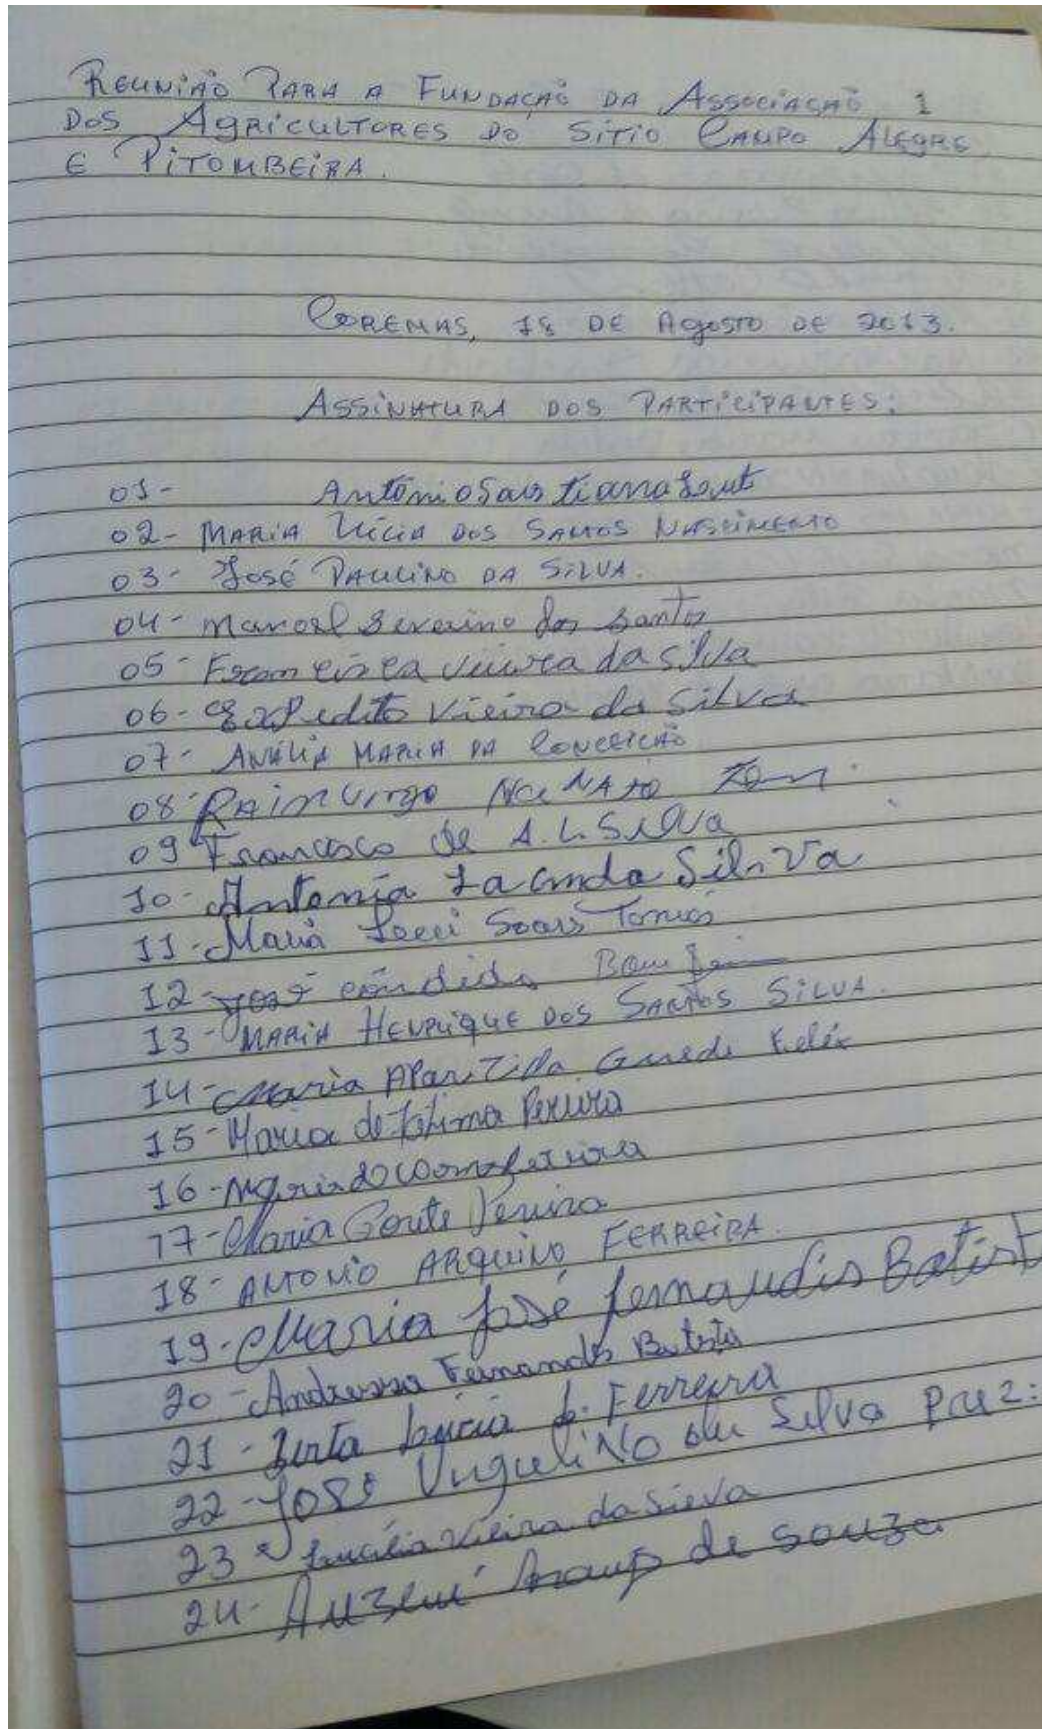 REUNIÃO PARA A FUNDAÇÃO DA ASSOCIAÇÃO 1
DOS AGRICULTORES DO SÍTIO CAMPO ALEGRE
E PITOMBEIRA.
COREMAS, 18 DE AGOSTO DE 2013.
ASSINATURA DOS PARTICIPANTES:
01- Antônio
02- MARIA LÚCIA DOS SANTOS NASCIMENTO
03- JOSÉ PAULINO DA SILVA.
04- manoel Severino dos Santos
05- Francisca Vieira da silva
06- Expedito Vieira da Silva
07- ANÁLIA MARIA DA CONCEIÇÃO
08- NONATO
09 Francisco de A. L. Silva
10- Antonia Silva
11- Maria Soares
12- José cândido
13- MARIA HENRIQUE DOS SANTOS SILVA.
14- Maria Guede
15- Maria de Fátima Pereira
16- Maria do
17- Maria Gorete Pereira
18- ANTONIO ARQUINO FERREIRA.
19- Maria José fernandis Batist
20- Andressa Fernandes Batista
21- Lúcia Ferreira
22- José Silva
23- Vieira da Silva
24- de Souza